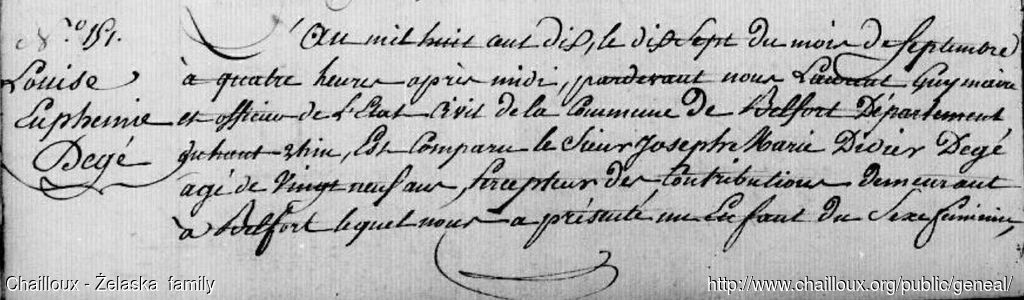 N.º 151.
Louise
Euphemie
Degé
L'An mil huit cent dix, le dix Sept du mois de Septembre
à quatre heures après midi, pardevant nous Laurent Guy maire
et officier de L'Etat Civil de la Commune De Belfort Département
Du haut Rhin, Est Comparu le Sieur Joseph Marie Didier Degé
agé de Vingt neuf ans, Percepteur des Contributions demeurant
à Belfort lequel nous a présenté un Enfant du Sexe feminin,
Chailloux - Želaska family
http://www.chailloux.org/public/geneal/